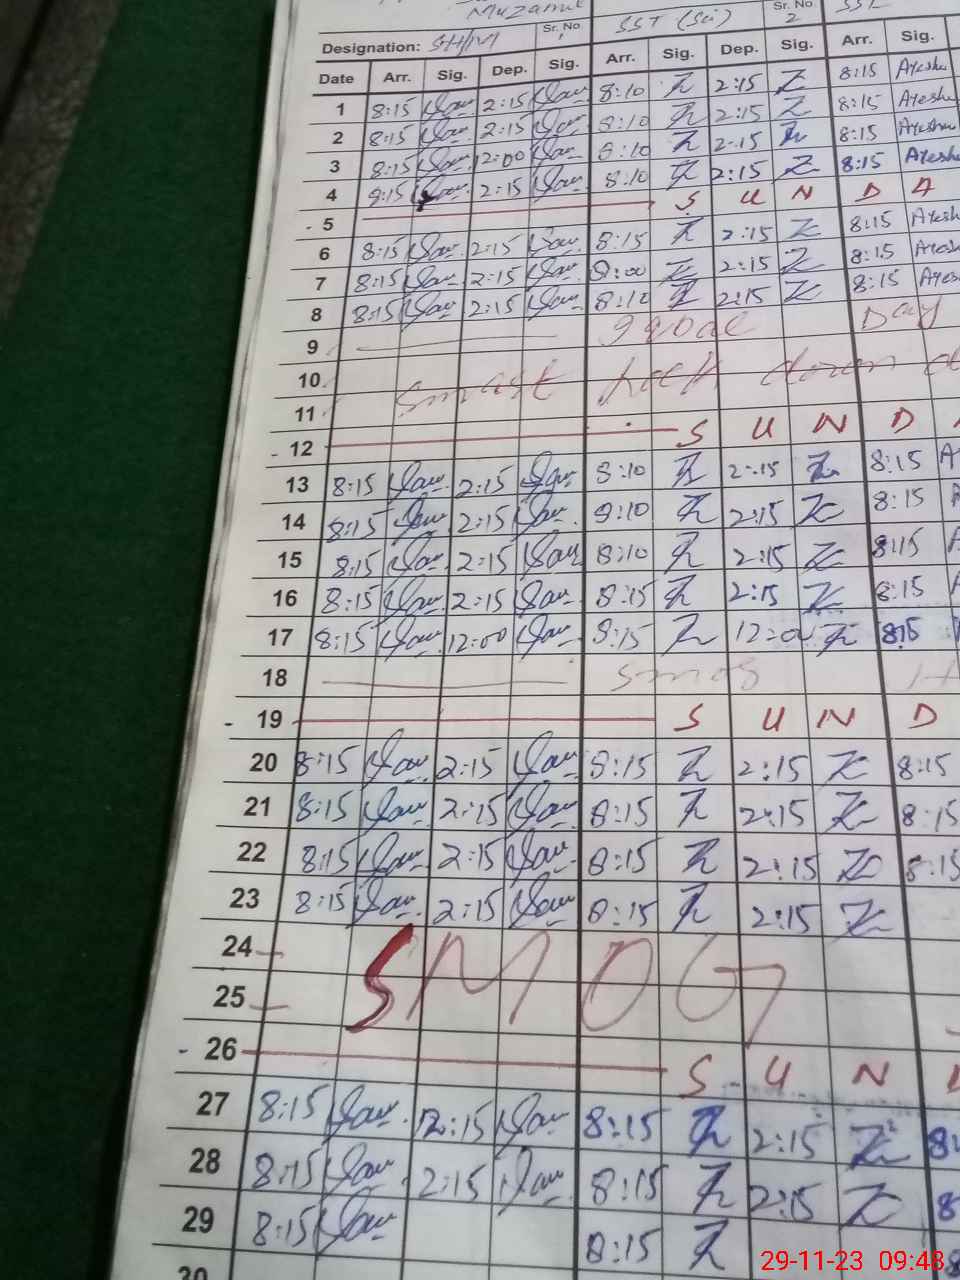 Muzamil SST (Sci) Sr. No. 2 SST
Designation: SHM Sr. No. 1
Date Arr. Sig. Dep. Sig. Arr. Sig. Dep. Sig. Arr. Sig.
1 8:15 2:15 8:10 2:15 8:15 Ayesha
2 8:15 2:15 8:10 2:15 8:15 Ayesha
3 8:15 12:00 8:10 2:15 8:15 Ayesha
4 8:15 2:15 8:10 2:15 8:15 Ayesha
- 5 S U N D A
6 8:15 2:15 8:15 2:15 8:15 Ayesha
7 8:15 2:15 8:00 2:15 8:15 Ayesha
8 8:15 2:15 8:10 2:15 8:15 Ayesha
9 Day
10 Smart down
11
- 12 S U N D
13 8:15 2:15 8:10 2:15 8:15 A
14 8:15 2:15 8:10 2:15 8:15
15 8:15 2:15 8:10 2:15 8:15
16 8:15 2:15 8:15 2:15 8:15
17 8:15 12:00 8:15 12:00 8:15
18 Smog H
- 19 S U N D
20 8:15 2:15 8:15 2:15 8:15
21 8:15 2:15 8:15 2:15 8:15
22 8:15 2:15 8:15 2:15 8:15
23 8:15 2:15 8:15 2:15
24 SMOG
25
- 26 S U N D
27 8:15 2:15 8:15 2:15 8
28 8:15 2:15 8:15 2:15 8
29 8:15 8:15
30
29-11-23 09:48